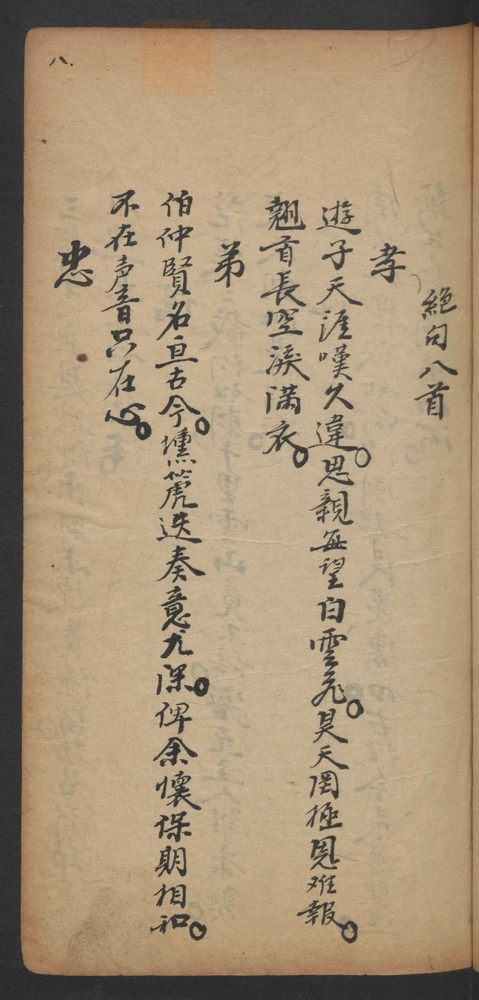 八
絕句八首
孝
遊子天涯嘆久違。思親每望白雲飛。昊天罔極恩难報。
翹首長空淚滿衣。
弟
伯仲賢名亘古今。壎箎迭奏意尤深。俾余懷保期相和。
不在声音只在心。
忠